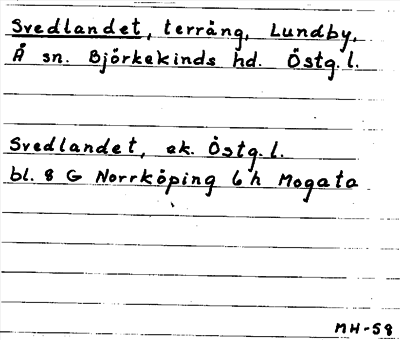 Svedlandet, terräng, Lundby,
Å sn. Björkekinds hd. Östg.l.
Svedlandet, ek. Östg.l.
bl. 8 G Norrköping 6 h Mogata
MH-58